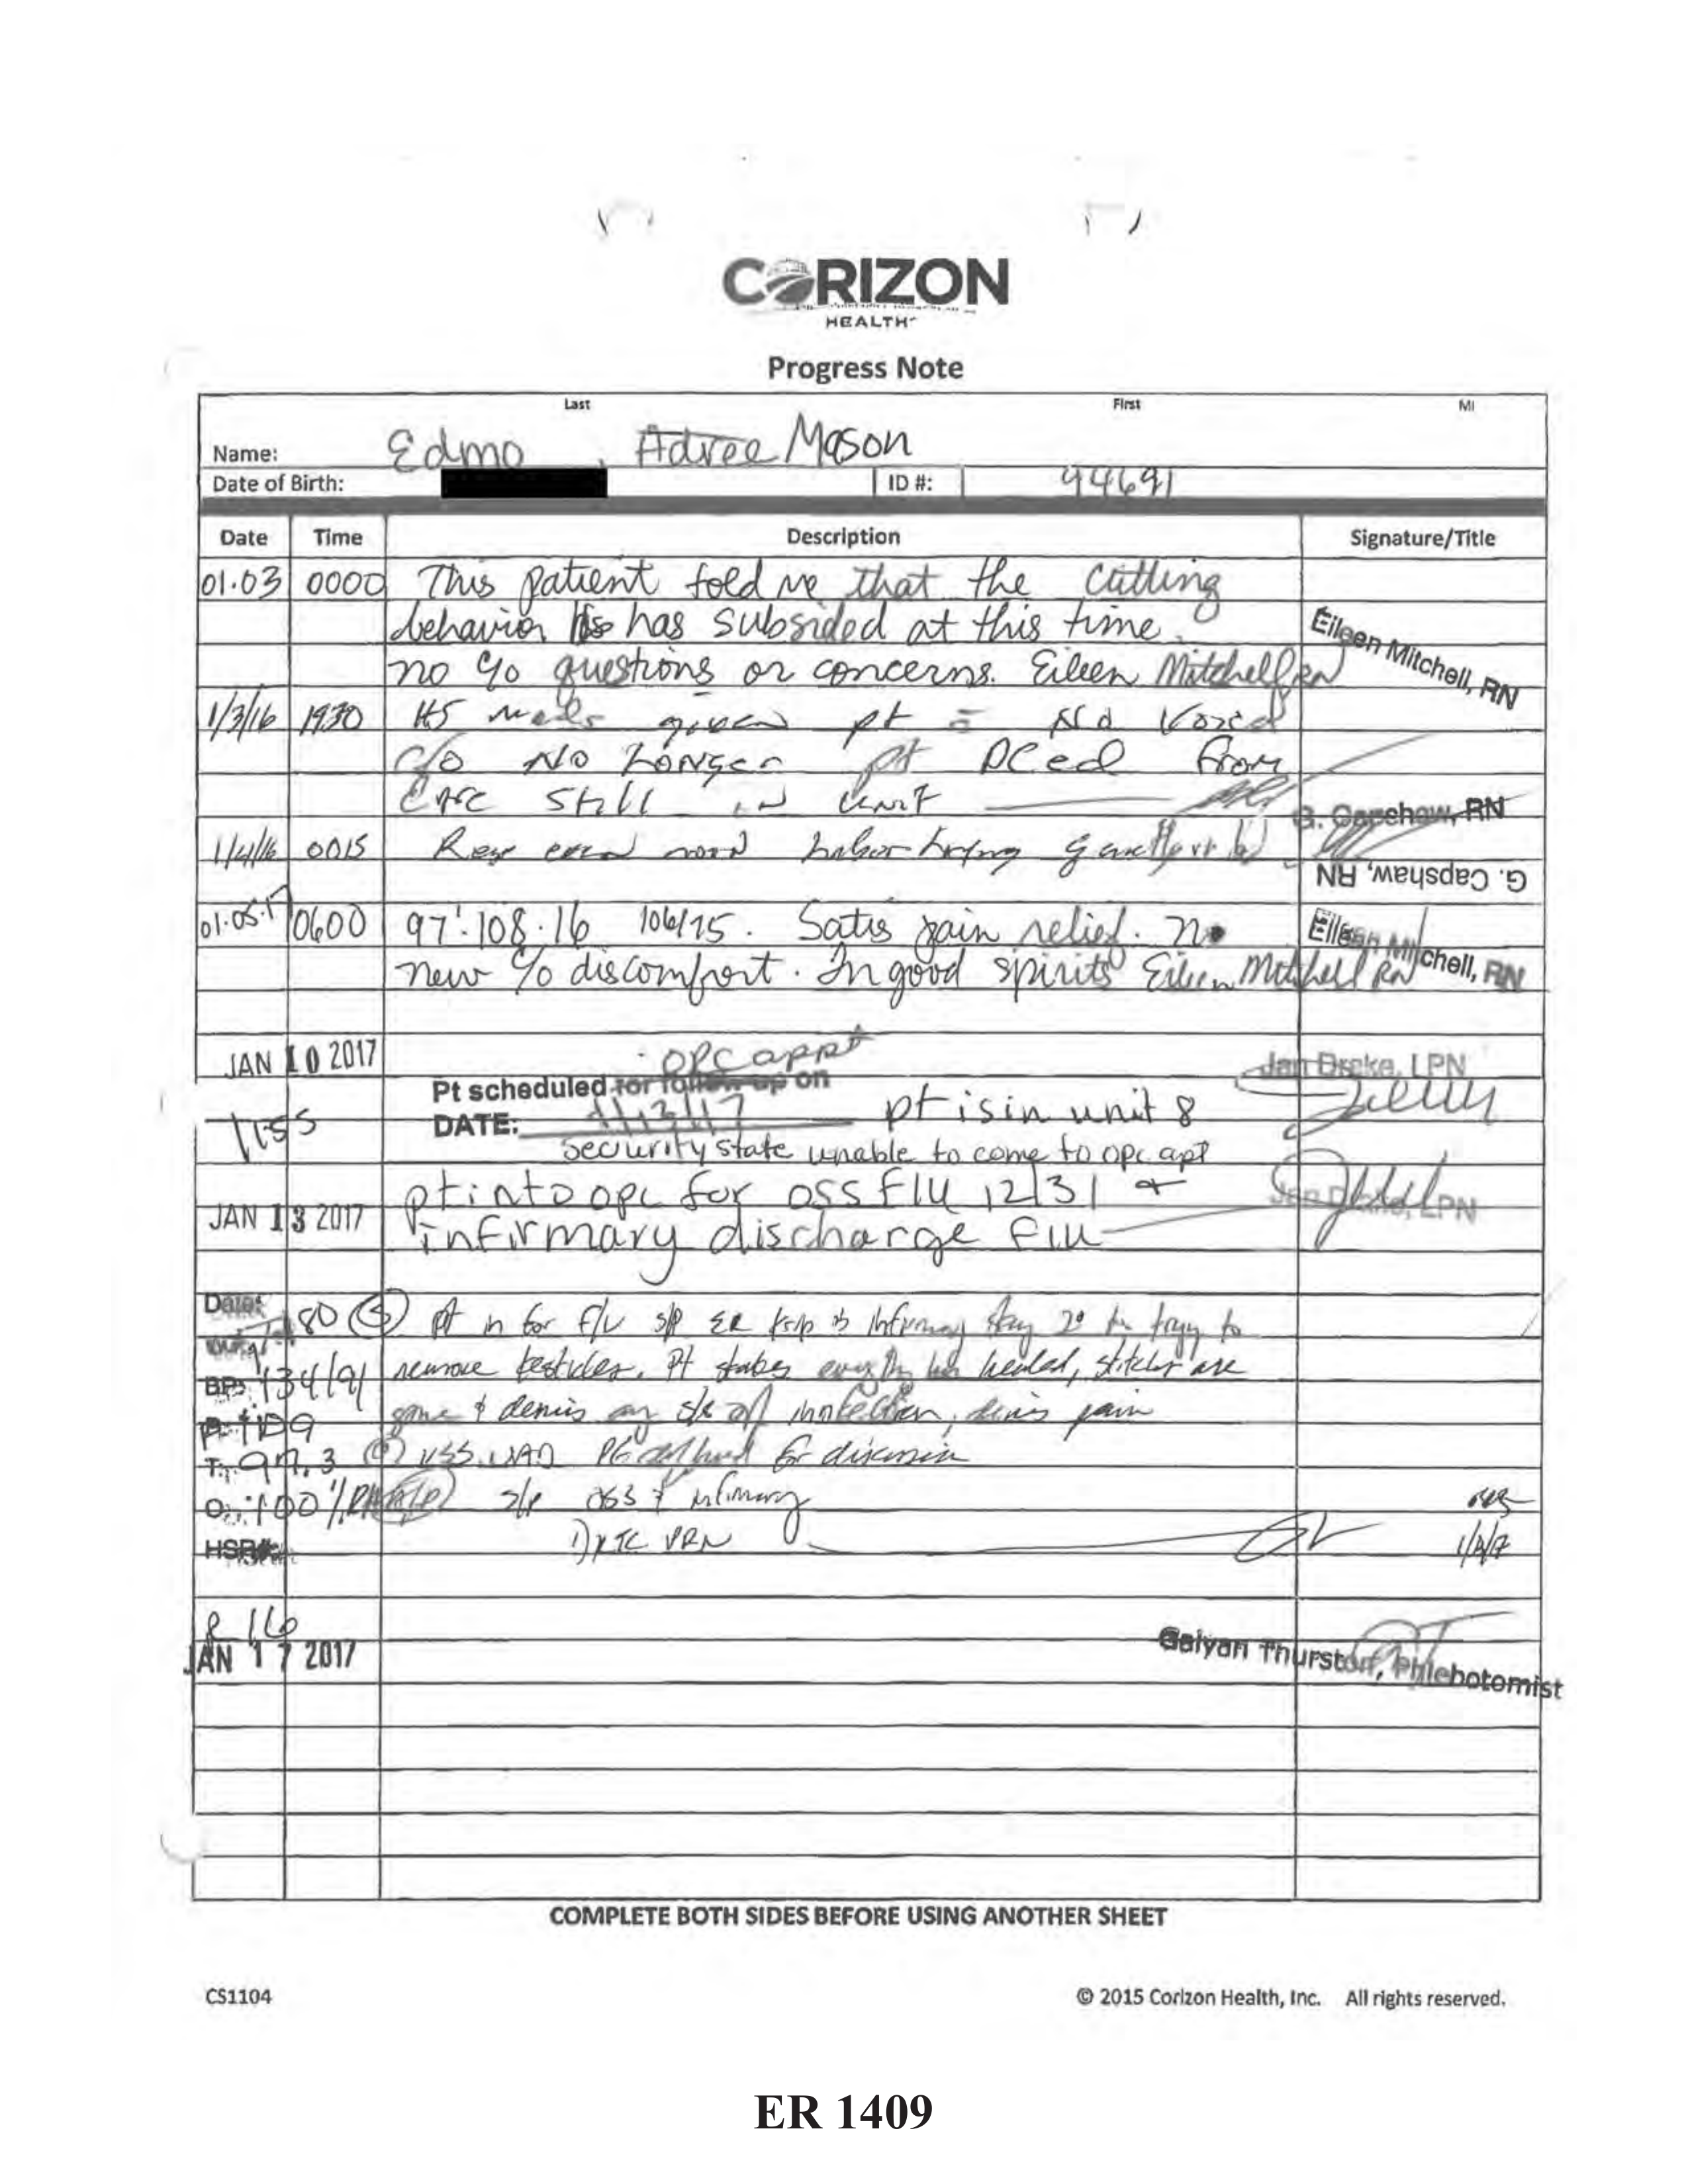 CORIZON
HEALTH
Progress Note
Last First MI
Name: Edmo, Adree Mason
Date of Birth: ID #: 94691
Date Time Description Signature/Title
01.03 0000 This patient told me that the cutting
behavior has subsided at this time.
no c/o questions or concerns. Eileen Mitchell RN
Eileen Mitchell, RN
1/3/16 1930 HS meds given pt No Voiced
c/o No Longer pt DCed from
still in unit
G. Capshaw, RN
1/4/16 0015 Resp even
G. Capshaw, RN
01.05.17 0600 97.108.16 106/75. Satis pain relief. no
new c/o discomfort. In good spirits Eileen Mitchell RN
Eileen Mitchell, RN
JAN 10 2017 OPC appt Jan Drake, LPN
Pt scheduled for follow-up on
1155 DATE: 1/13/17 pt is in unit 8
security state unable to come to opc apt
JAN 13 2017 pt into opc for OSS F/U 12/31 +
infirmary discharge F/U
Jan Drake, LPN
Date:
180 (S) pt in for f/u s/p ER infirmary stay 2° to trying to
BP: 134/91 remove testicles. Pt states has healed, stitches are
P: 109 gone & denies any s/s of infection, denies pain
T: 97.3 (O) VSS. NAD for discussion
O2: 100% RA (A/P) s/p OSS & infirmary
HSR#: 1) RTC PRN
R 16
JAN 17 2017 Galyan Thurston, Phlebotomist
COMPLETE BOTH SIDES BEFORE USING ANOTHER SHEET
CS1104 © 2015 Corizon Health, Inc. All rights reserved.
ER 1409